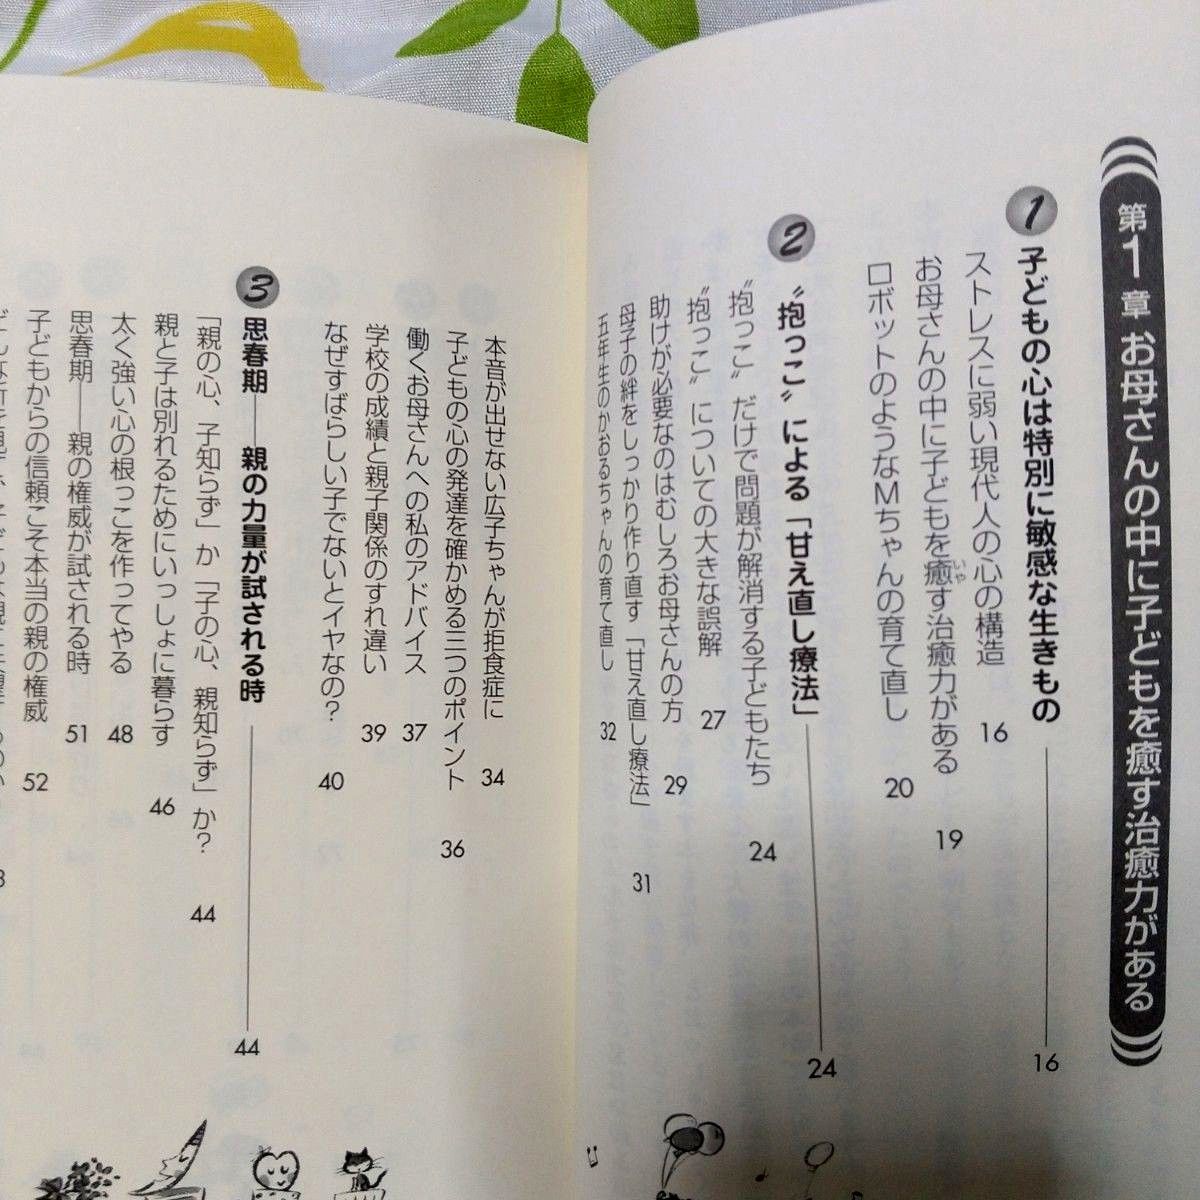 第1章 お母さんの中に子どもを癒す治癒力がある
1 子どもの心は特別に敏感な生きもの 16
ストレスに弱い現代人の心の構造 16
お母さんの中に子どもを癒す治癒力がある 19
いや
ロボットのようなMちゃんの育て直し 20
2 〝抱っこ〟による「甘え直し療法」 24
〝抱っこ〟だけで問題が解消する子どもたち 24
〝抱っこ〟についての大きな誤解 27
助けが必要なのはむしろお母さんの方 29
母子の絆をしっかり作り直す「甘え直し療法」 31
五年生のかおるちゃんの育て直し 32
本音が出せない広子ちゃんが拒食症に 34
子どもの心の発達を確かめる三つのポイント 36
働くお母さんへの私のアドバイス 37
学校の成績と親子関係のすれ違い 39
なぜすばらしい子でないとイヤなの？ 40
3 思春期——親の力量が試される時 44
「親の心、子知らず」か「子の心、親知らず」か？ 44
親と子は別れるためにいっしょに暮らす 46
太く強い心の根っこを作ってやる 48
思春期——親の権威が試される時 51
子どもからの信頼こそ本当の親の権威 52